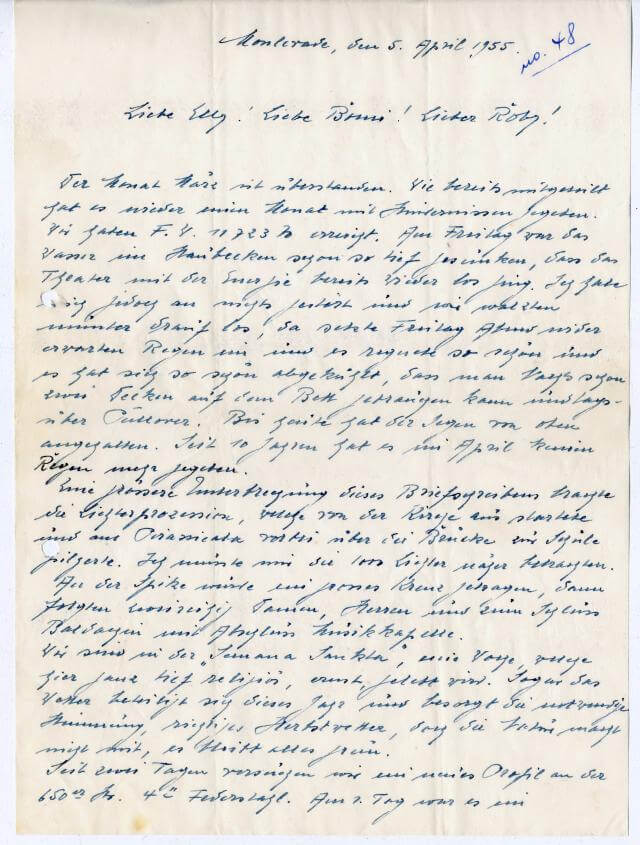 Monlevade, den 5. April 1955.
no. 48
Liebe Elly! Liebe Bömi! Lieber Röby!
Der Monat März ist überstanden. Wie bereits mitgeteilt
hat es wieder einen Monat mit Hindernissen gegeben.
Wir haben F. Y. 11723 to erreicht. Am Freitag war das
Wasser im Staubecken schon so tief gesunken, dass das
Theater mit der Energie bereits wieder los ging. Ich habe
mich jedoch an nichts gestört und wir walzten
munter drauf los, da setzte Freitag Abend wider
erwarten Regen ein und es regnete so schön und
es hat sich so schön abgekühlt, dass man Nachts schon
zwei Decken auf dem Bett vertragen kann und tags-
über Pullover. Bis heute hat der Segen von oben
angehalten. Seit 10 Jahren hat es im April keinen
Regen mehr gegeben.
Eine grössere Unterbrechung dieses Briefschreibens brachte
die Lichterprozession, welche von der Kirche aus startete
und am vorbei über die Brücke zur Schule
pilgerte. Ich musste mir die 1000 Lichter näher betrachten.
An der Spitze wurde ein grosses Kreuz getragen, dann
folgten zweireihig Damen, Herren und zum Schluss
Baldachin mit Abschluss Musikkapelle.
Wir sind in der "Semana Sankta", eine Woche, welche
hier ganz tief religiös, ernst gelebt wird. Sogar das
Wetter beteiligt sich dieses Jahr und besorgt die notwendige
Stimmung, richtiges Herbstwetter, doch die Natur macht
nicht mit, es bleibt alles grün.
Seit zwei Tagen versuchen wir ein neues Profil an der
650er Str. 4" Federstahl. Am 1. Tag war es ein